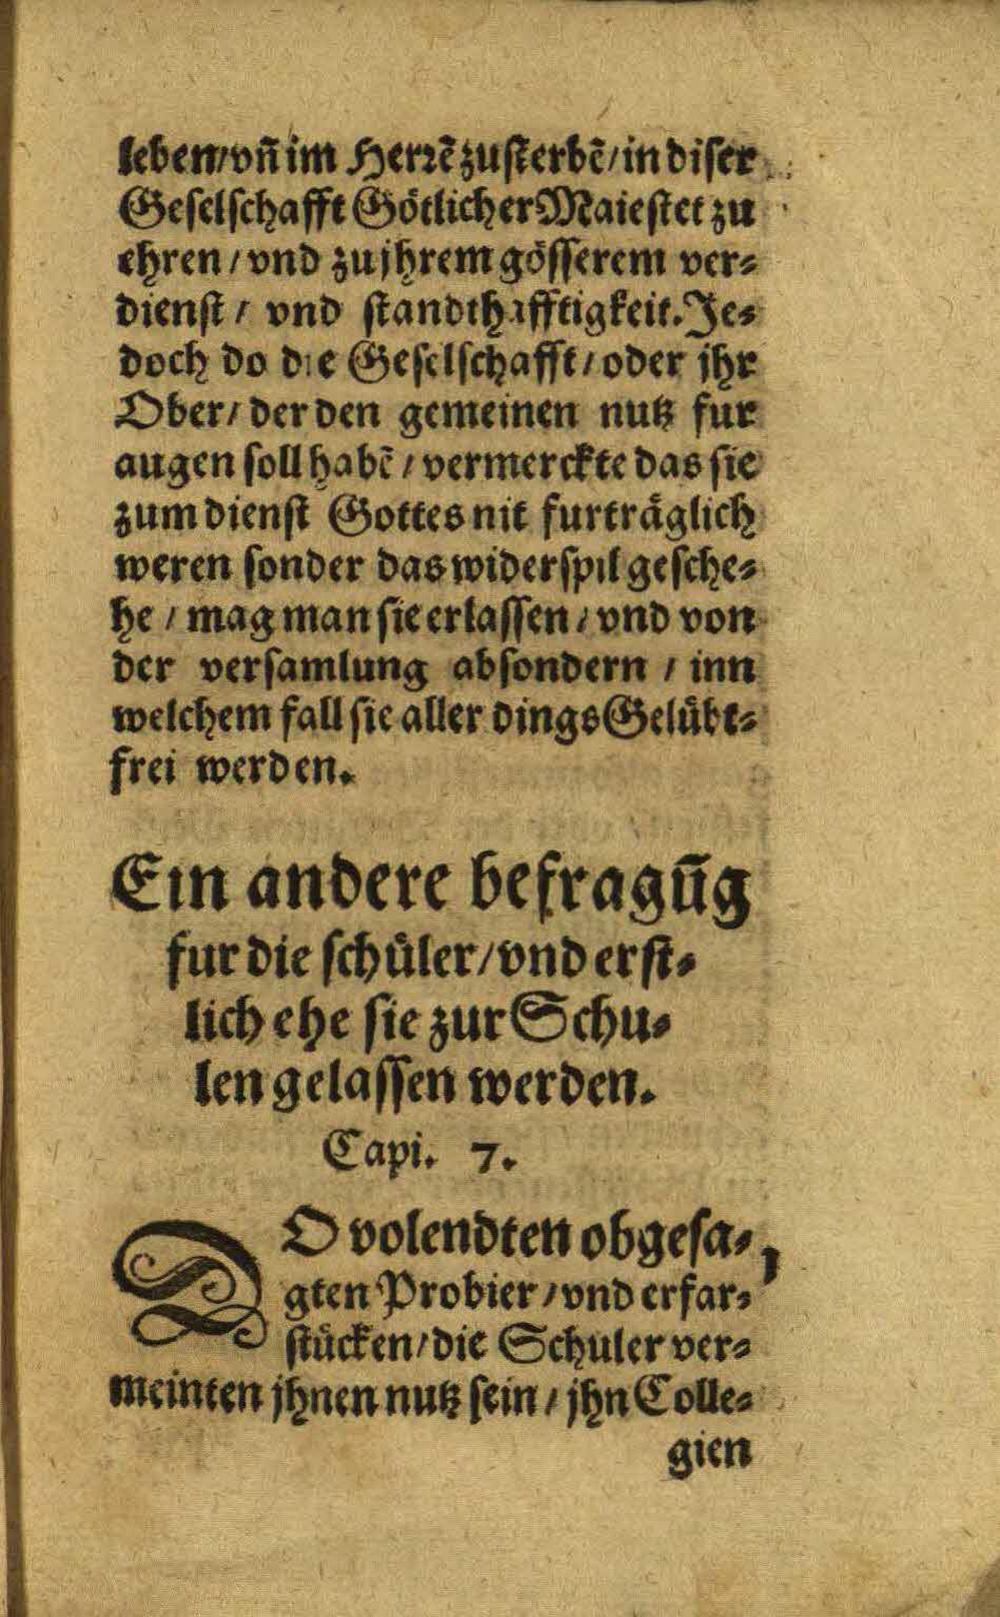 leben/vñ im Herrẽ zu sterbẽ/in diser
Geselschafft Götlicher Maiestet zu
ehren/vnd zu jhrem gösserem ver⸗
dienst/ vnd standthafftigkeit. Je⸗
doch do die Geselschafft/oder jhr
Ober/ der den gemeinen nutz fur
augen soll habẽ/vermerckte das sie
zum dienst Gottes nit furträglich
weren sonder das widerspil gesche⸗
he/mag man sie erlassen/vnd von
der versamlung absondern/inn
welchem fall sie aller dings Gelübt⸗
frei werden.
Ein andere befragũg
fur die schůler/vnd erst⸗
lich ehe sie zur Schu⸗
len gelassen werden.
Capi. 7.
DO volendten obgesa⸗
gten Probier/vnd erfar⸗
stücken/die Schuler ver⸗
meinten jhnen nutz sein/jhn Colle⸗
gien